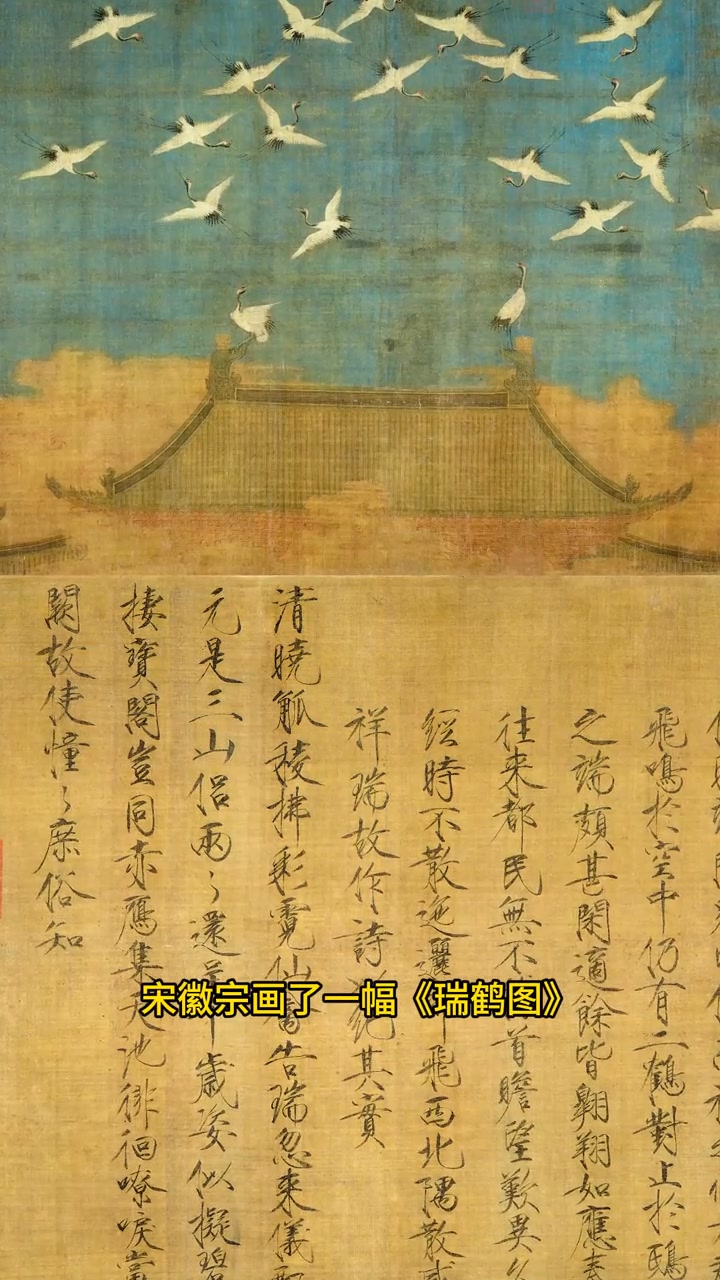 飛鳴於空中仍有二鶴對止於鴟
之端頗甚閑適餘皆翺翔如應奏
往來都民無不首瞻望歎異久
經時不散迤邐飛西北隅散
祥瑞故作詩紀其實
清曉觚稜拂彩霓仙告瑞忽來儀
元是三山侶兩〻還歲姿似擬碧
棲寶閣豈同赤鴈集天池徘徊嘹唳當
闕故使憧〻庶俗知
宋徽宗画了一幅《瑞鹤图》